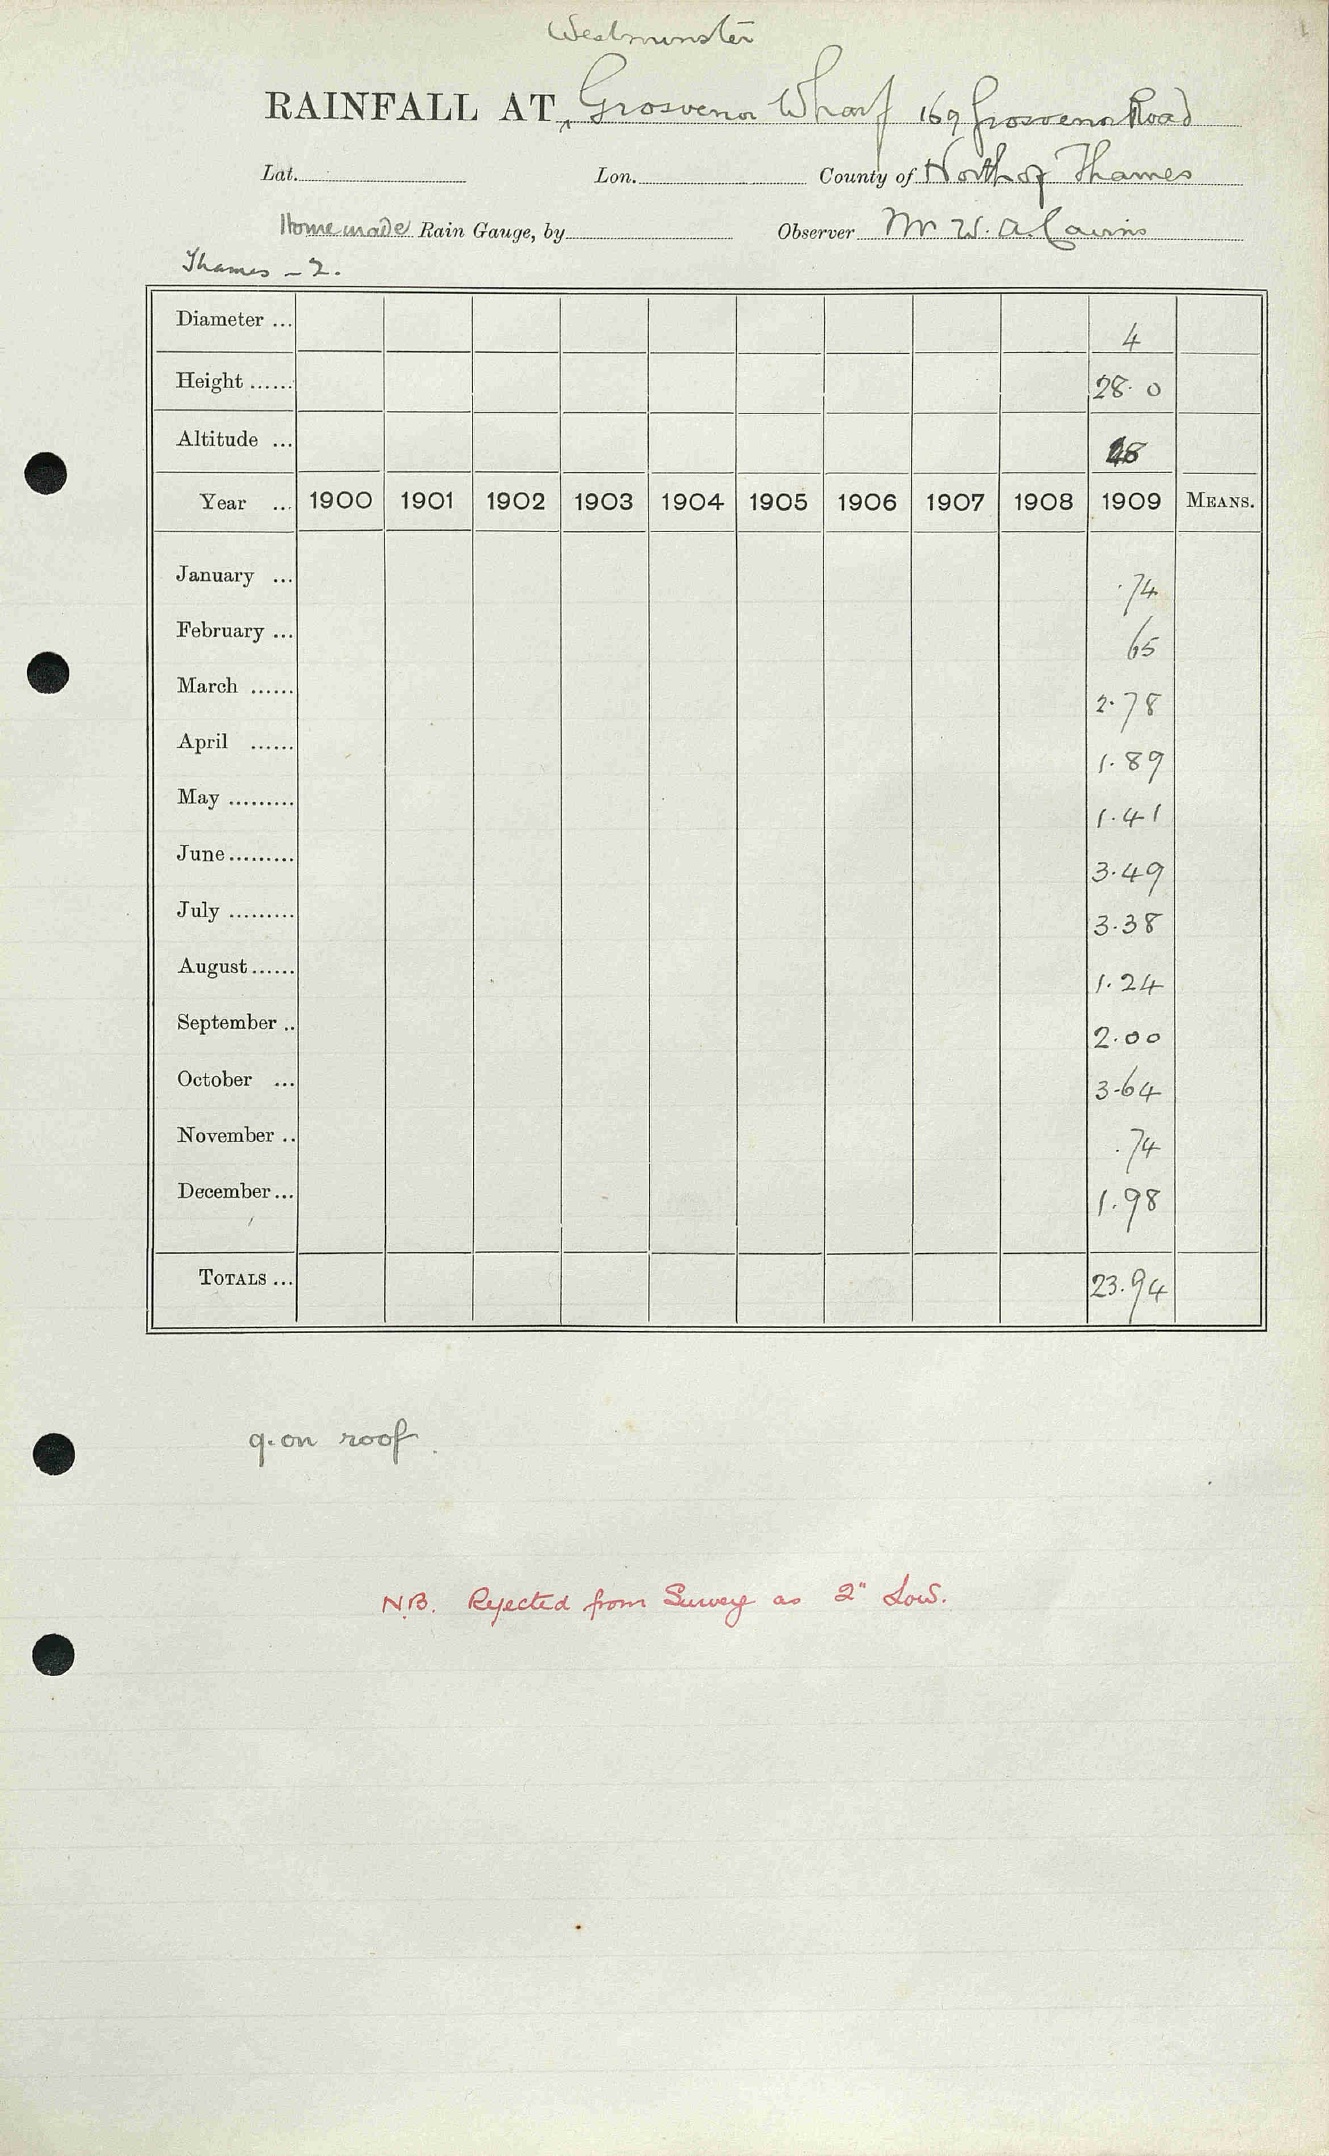 Westminster
RAINFALL AT Grosvenor Wharf 169 Grosvenor Road
Lat. Lon. County of North of Thames
Home made Rain Gauge, by Observer Mr W. A. Cairns
Thames - 2.
Diameter ... 4
Height ...... 28.0
Altitude ...
Year ... 1900 1901 1902 1903 1904 1905 1906 1907 1908 1909 MEANS.
January ... .74
February ... 65
March ...... 2.78
April ...... 1.89
May ......... 1.41
June ......... 3.49
July ......... 3.38
August ...... 1.24
September .. 2.00
October ... 3.64
November .. .74
December ... 1.98
TOTALS ... 23.94
g. on roof.
N.B. Rejected from Survey as 2" Low.